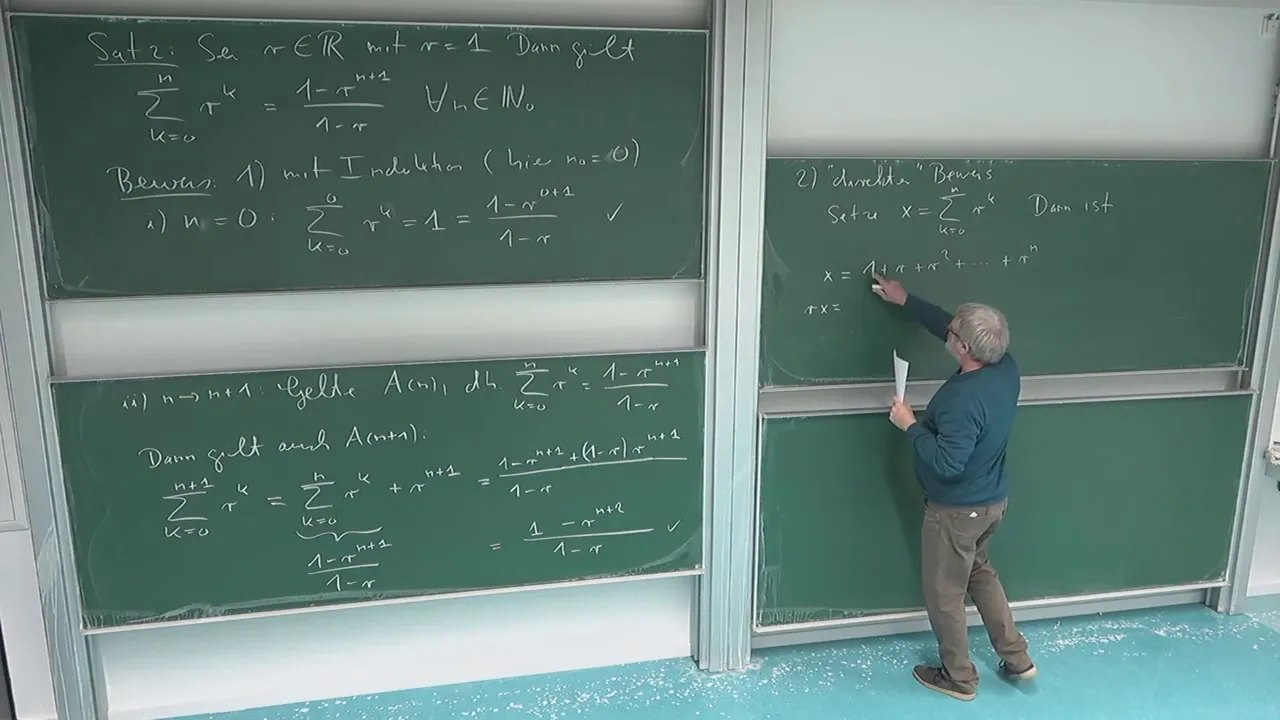 Satz: Sei r ∈ ℝ mit r = 1 Dann gilt
∑_{k=0}^{n} r^k = (1 - r^{n+1})/(1 - r) ∀n ∈ ℕ₀
Beweis: 1) mit Induktion (hier n₀ = 0)
i) n = 0: ∑_{k=0}^{0} r^k = 1 = (1 - r^{0+1})/(1 - r) ✓
ii) n → n+1: Gelte A(n), dh. ∑_{k=0}^{n} r^k = (1 - r^{n+1})/(1 - r)
Dann gilt auch A(n+1):
∑_{k=0}^{n+1} r^k = ∑_{k=0}^{n} r^k + r^{n+1} = (1 - r^{n+1} + (1-r) r^{n+1})/(1 - r)
(1 - r^{n+1})/(1 - r)
= (1 - r^{n+2})/(1 - r) ✓
2) "direkter" Beweis
Setze x = ∑_{k=0}^{n} r^k Dann ist
x = 1 + r + r² + ... + r^n
rx =